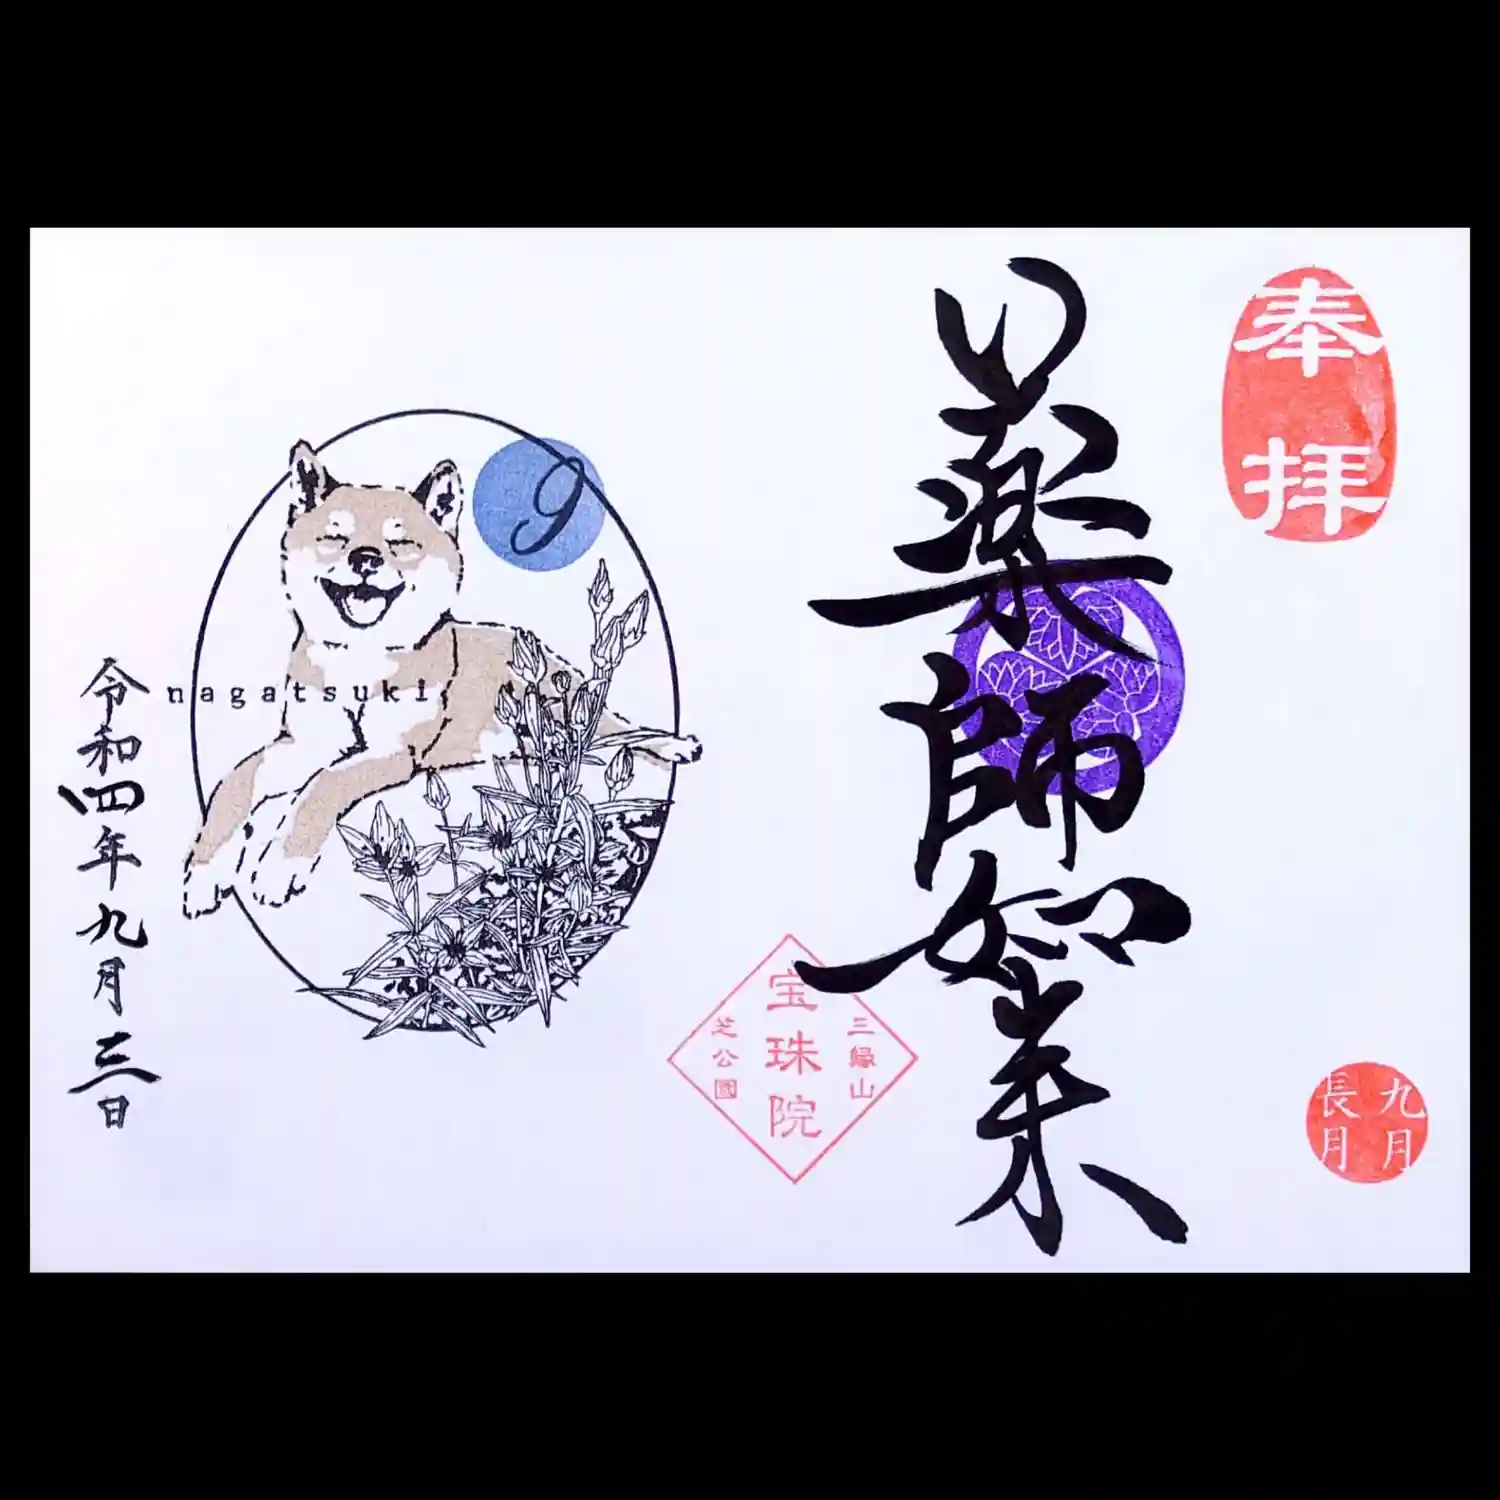 奉拝
九月
長月
薬師如来
三縁山
宝珠院
芝公園
9
nagatsuki
令和四年九月三日